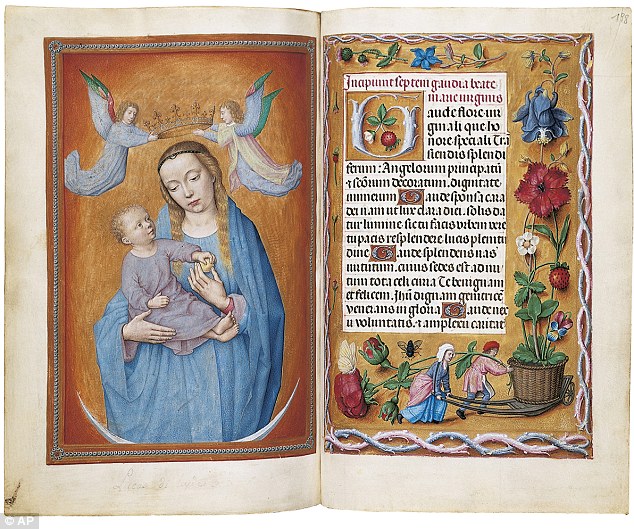 198
Incipiunt septem gaudia beate
marie virginis
Gaude flore vir
ginali que ho
nore speciali Trā
scendis splendi
ferum: Angelorum principatū
& sc̄orum decoratum, dignitate
numerum Gaude sponsa cara
dei nam ut lux clara diei solis da
tur lumine sic tu facis urbem vere
tu pacis resplendere lucis plenitu
dine Gaude splendens uas
uirtutum, cuius sedes est ad nu
tum tota celi curia Te benignam
et felicem. Jhū dignam genitricē
venerans in gloria Gaude nex
u voluntatis, & amplexu caritat
© AP